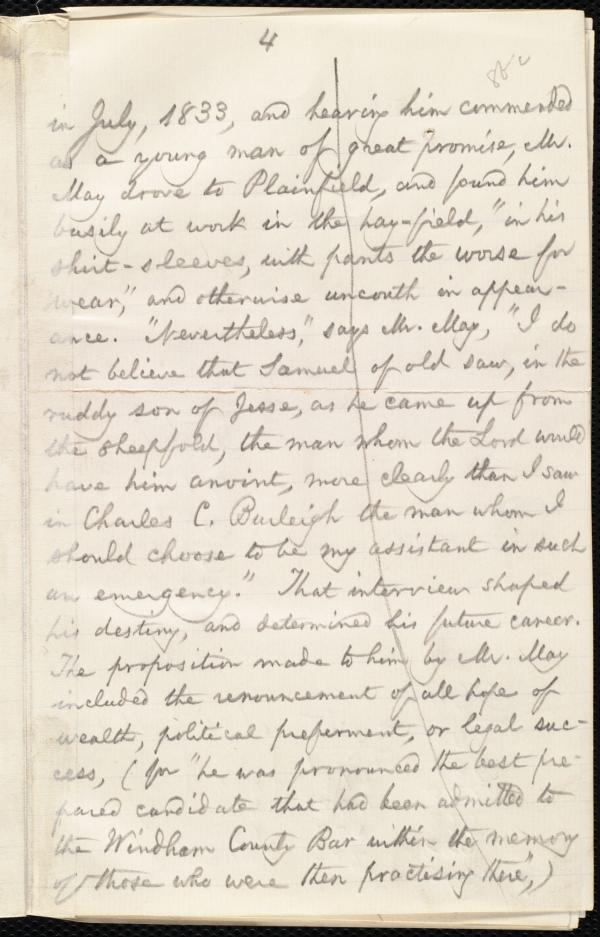 4
in July, 1833, and hearing him commended
as a young man of great promise, Mr.
May drove to Plainfield, and found him
busily at work in the hay-field, "in his
shirt-sleeves, with pants the worse for
wear," and otherwise uncouth in appear-
ance. "Nevertheless," says Mr. May, "I do
not believe that Samuel of old saw, in the
ruddy son of Jesse, as he came up from
the sheepfold, the man whom the Lord would
have him anoint, more clearly than I saw
in Charles C. Burleigh the man whom I
should choose to be my assistant in such
an emergency." That interview shaped
his destiny, and determined his future career.
The proposition made to him by Mr. May
included the renouncement of all hope of
wealth, political preferment, or legal suc-
cess, (for "he was pronounced the best pre-
pared candidate that had been admitted to
the Windham County Bar within the memory
of those who were then practising there",)